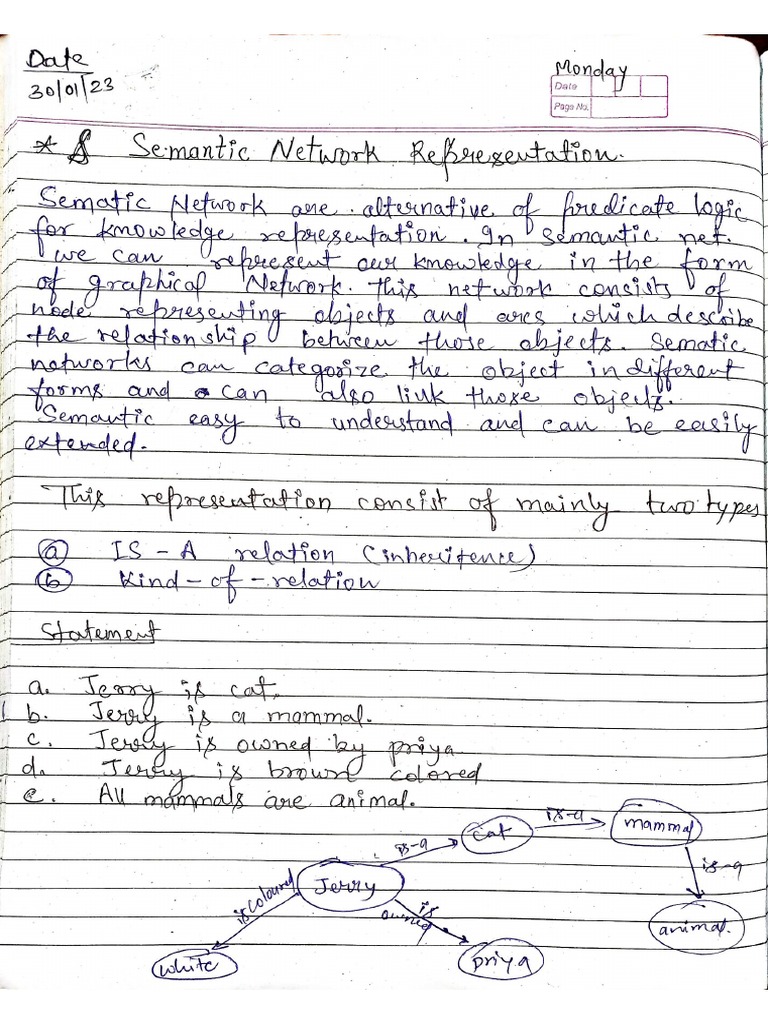 Date
30/01/23
Monday
Date
Page No.
* Semantic Network Representation.
Sematic Network are alternative of predicate logic
for knowledge representation. In semantic net.
we can represent our knowledge in the form
of graphical Network. This network consists of
node representing objects and arcs which describe
the relationship between those objects. Sematic
networks can categorize the object in different
forms and can also link those objects.
Semantic easy to understand and can be easily
extended.
This representation consist of mainly two types
(a) IS-A relation (inheritence)
(b) Kind-of-relation
Statement
a. Jerry is cat.
b. Jerry is a mammal.
c. Jerry is owned by priya
d. Jerry is brown colored
e. All mammals are animal.
cat
is-a
mammal
is-a
is-a
Jerry
is coloured
is owned
animal.
white
priya